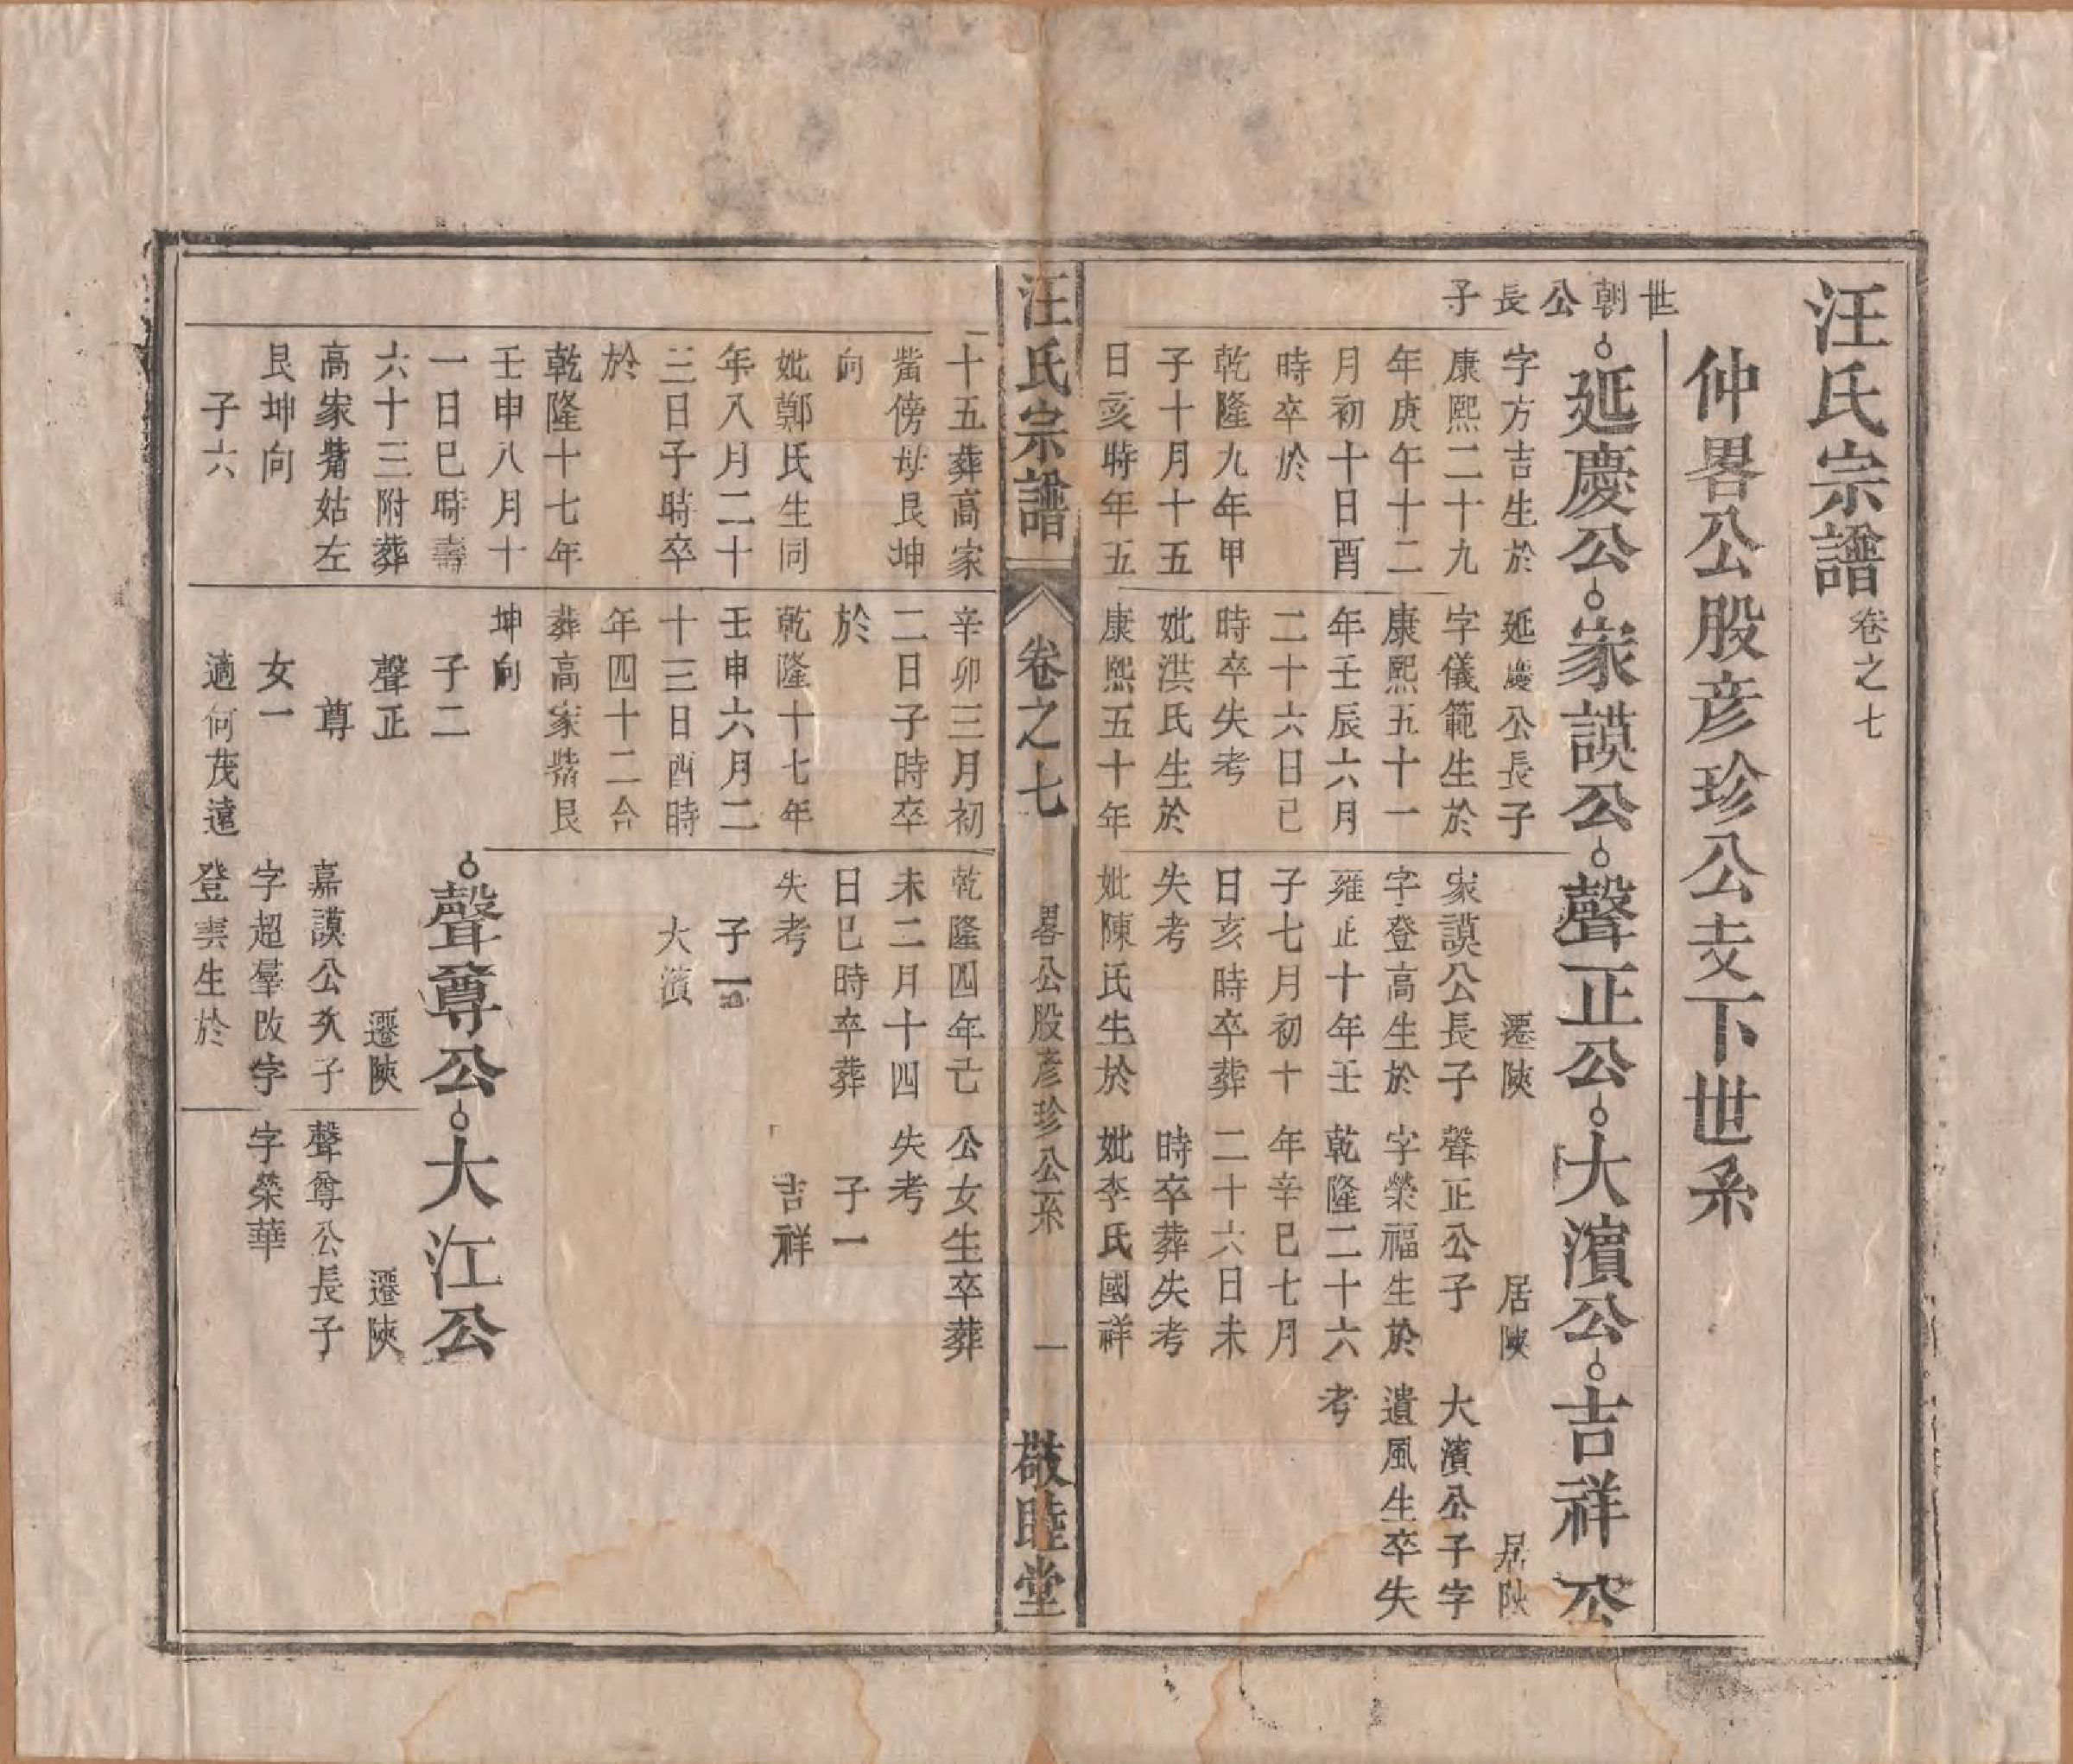 汪氏宗譜卷之七
仲畧公股彦珍公支下世系
世朝公長子
延慶公
字方吉生於
康熙二十九
年庚午十二
月初十日酉
時卒於
乾隆九年甲
子十月十五
日亥時年五
十五葬高家
嶲傍母艮坤
向
妣鄭氏生同
年八月二十
三日子時卒
於
乾隆十七年
壬申八月十
一日巳時壽
六十三附葬
高家嶲姑左
艮坤向
子六
家謨公
延慶公長子
字儀範生於
康熙五十一
年壬辰六月
二十六日巳
時卒失考
妣洪氏生於
康熙五十年
辛卯三月初
二日子時卒
於
乾隆十七年
壬申六月二
十三日酉時
年四十二合
葬高家嶲艮
坤向
子二
聲正
尊
女一
適何茂遠
聲正公
遷陝
家謨公長子
字登高生於
雍正十年壬
子七月初十
日亥時卒葬
失考
妣陳氏生於
乾隆四年己
未二月十四
日巳時卒葬
失考
子一
大濱
聲尊公
遷陝
嘉謨公次子
字超羣改字
登雲生於
大濱公
居陝
聲正公子
字榮福生於
乾隆二十六
年辛巳七月
二十六日未
時卒葬失考
妣李氏國祥
公女生卒葬
失考
子一
吉祥
大江公
遷陝
聲尊公長子
字榮華
吉祥公
居陝
大濱公子字
遺風生卒失
考
汪氏宗譜
卷之七
畧公股彦珍公系
一
敬睦堂